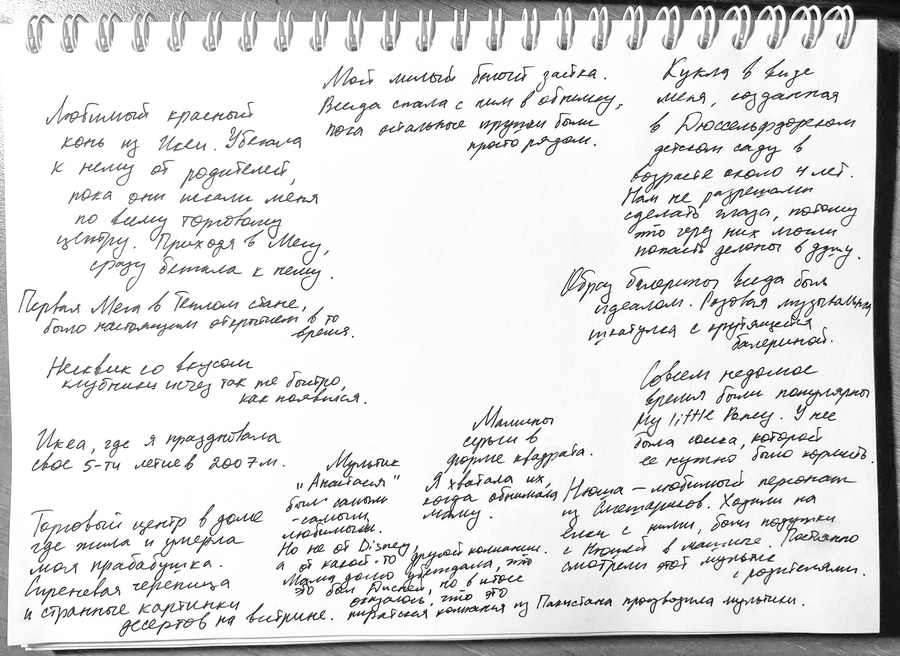 Любимый красный
конь из Икеи. Убегала
к нему от родителей,
пока они искали меня
по всему торговому
центру. Приходя в Мегу,
сразу бежала к нему.
Первая Мега в Теплом стане,
было настоящим открытием в то
время.
Несквик со вкусом
клубники исчез так же быстро,
как появился.
Икеа, где я праздновала
свое 5-ти летие в 2007м.
Торговый центр в доме
где жила и умерла
моя прабабушка.
Сиреневая черепица
и странные картинки
десертов на витрине.
Мой милый белый зайка.
Всегда спала с ним в обнимку,
пока остальные игрушки были
просто рядом.
Мультик
"Анастасия"
был самым
-самым
любимым.
Но не от Disney,
а от какой-то другой компании.
Мама долго убеждала, что
это был Дисней, но в итоге
оказалось, что это
пиратская компания из Пакистана производила мультики.
Мамины
серьги в
форме квадрата.
Я хватала их,
когда обнимала
маму.
Кукла в виде
меня, созданная
в Дюссельдорфском
детском саду в
возрасте около 4 лет.
Нам не разрешали
сделать глаза, потому
что через них могли
попасть демоны в душу.
Образ балерины всегда был
идеалом. Розовая музыкальная
шкатулка с крутящейся
балериной.
Совсем недолгое
время были популярны
My little Poney. У нее
была соска, которой
ее нужно было кормить.
Нюша – любимый персонаж
из Смешариков. Ходили на
елки с ними, были подушки
с Нюшей в машине. Постоянно
смотрели этот мультик
с родителями.